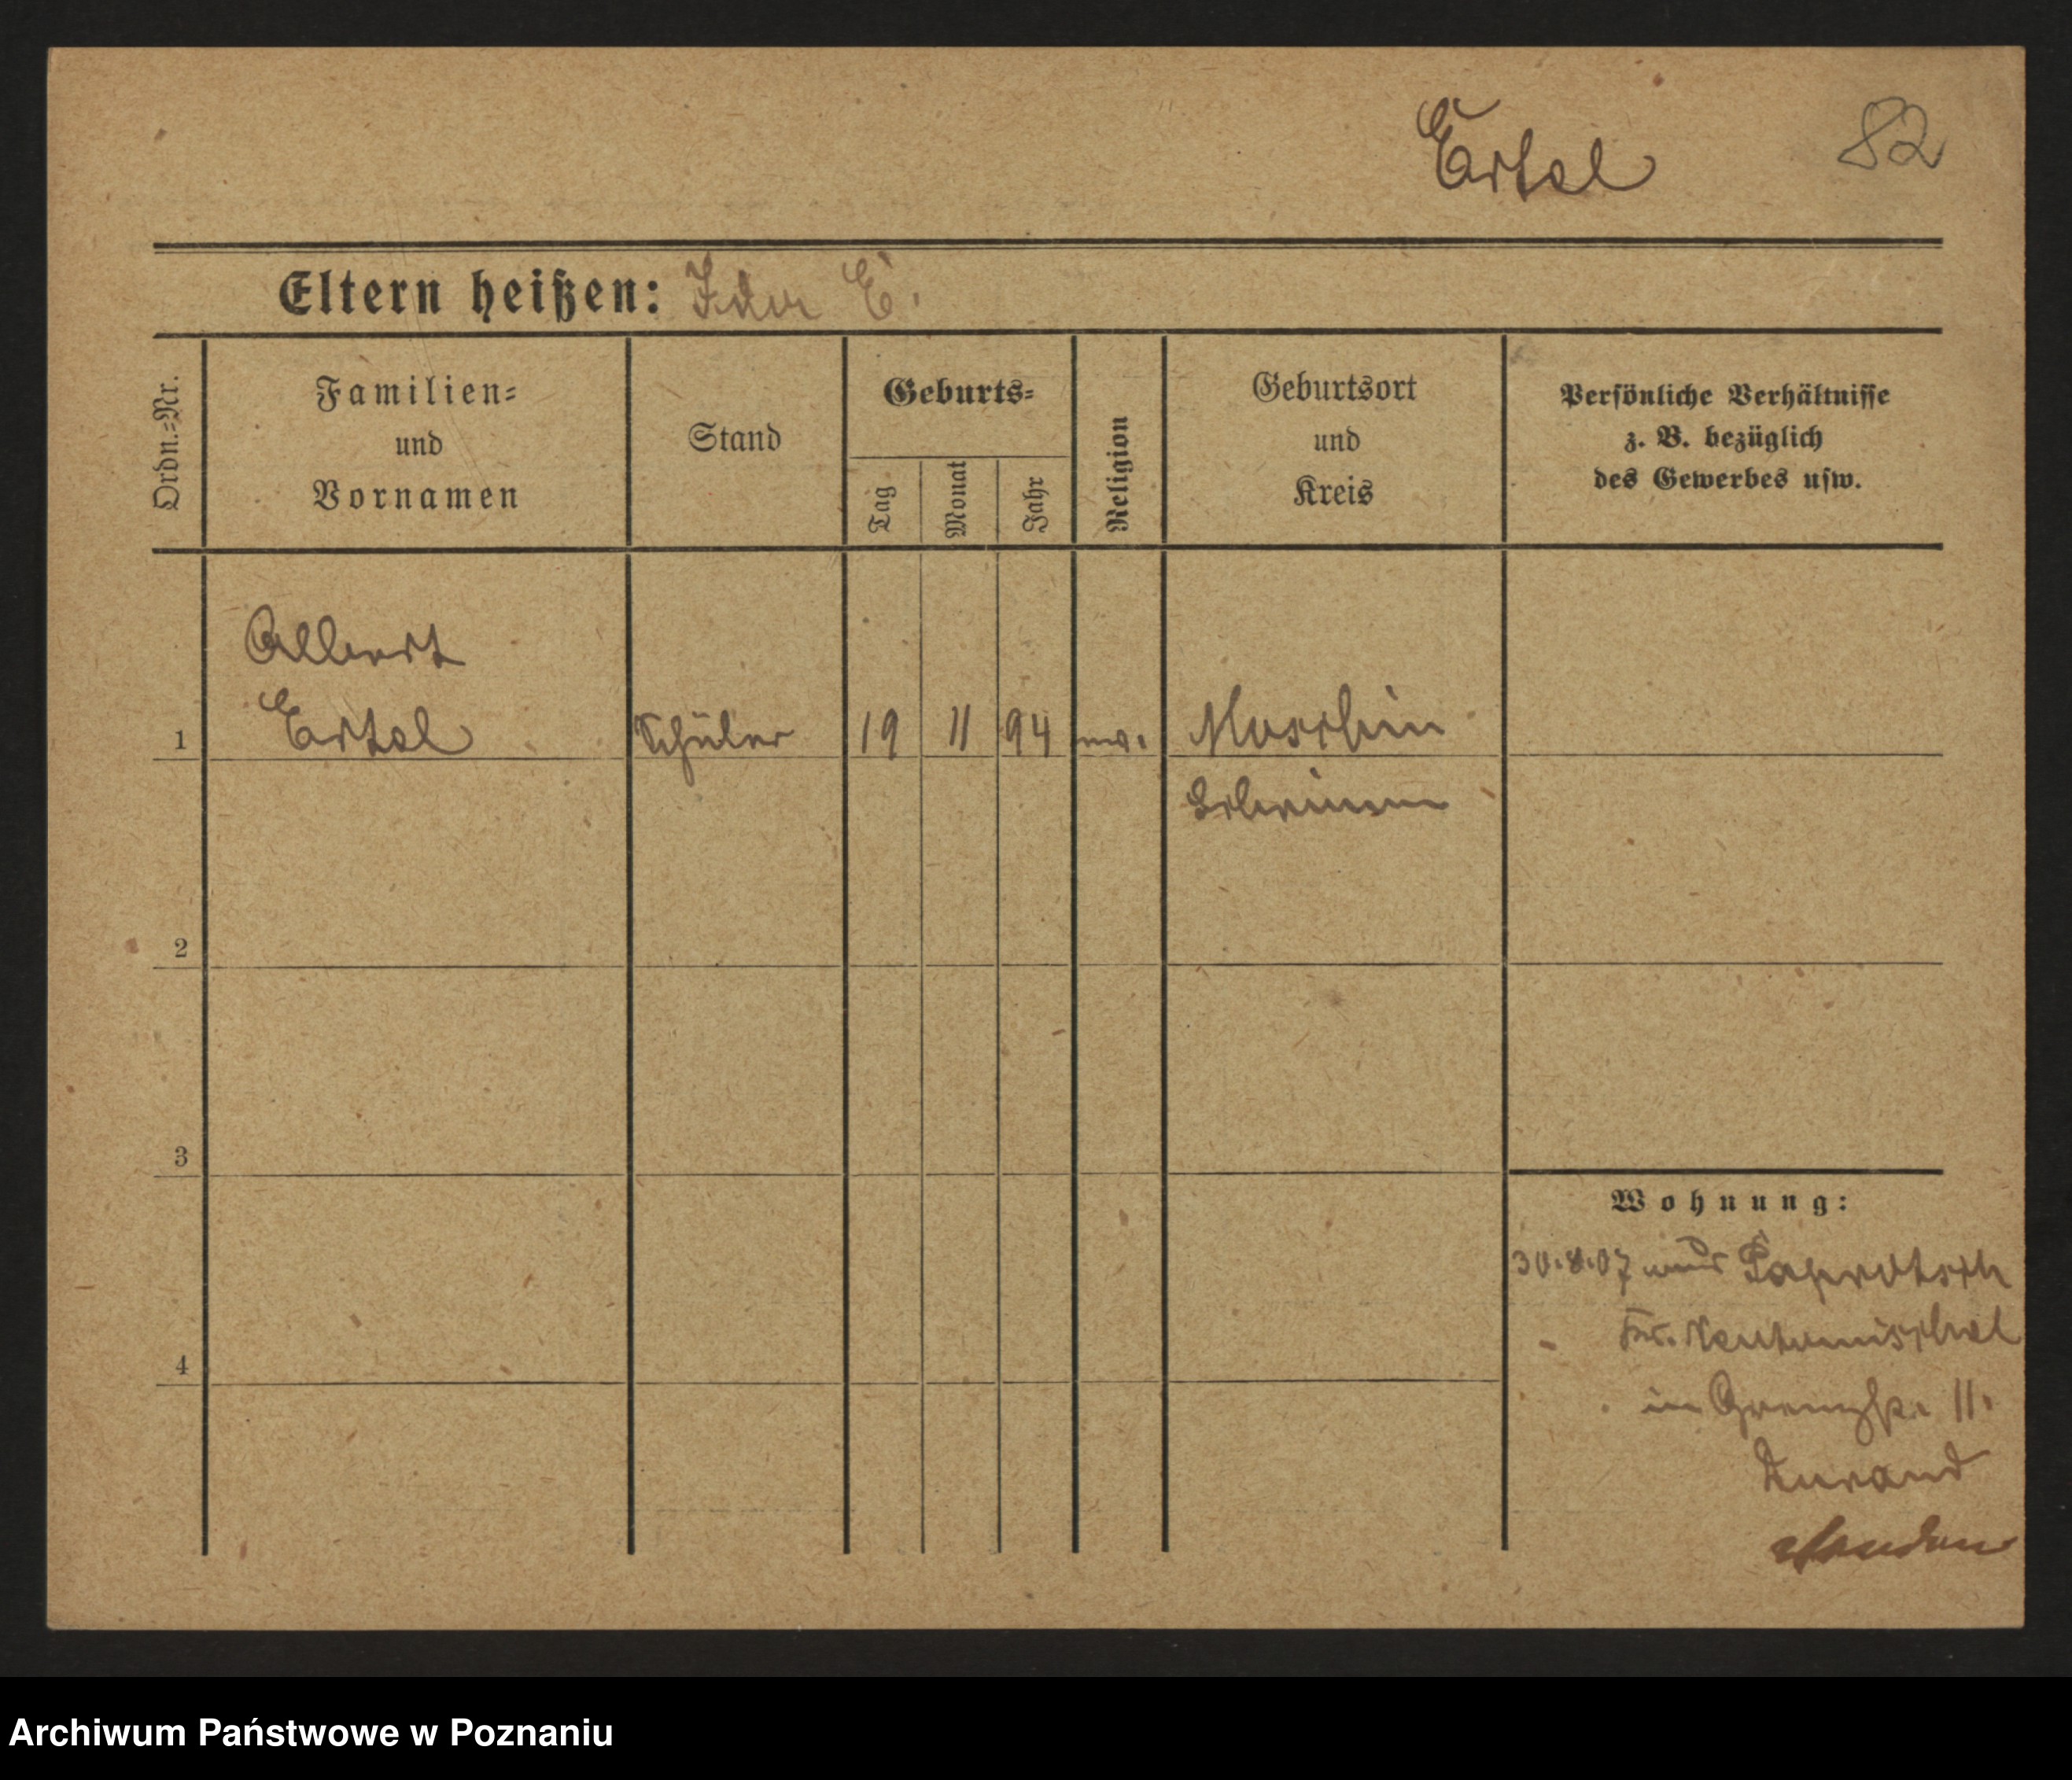 Ertel
82
Eltern heißen: Ida E.
Ordn.=Nr.
Familien=
und
Vornamen
Stand
Geburts=
Tag
Monat
Jahr
Religion
Geburtsort
und
Kreis
Persönliche Verhältnisse
z. B. bezüglich
des Gewerbes usw.
Albert
1 Ertel Schüler 19 11 94 ev. Moschin
Schrimm
2
3
4
Wohnung:
30.8.07 aus Paprotsch
Kr. Neutomischel
in Grenzstr. 11.
Durand
Archiwum Państwowe w Poznaniu